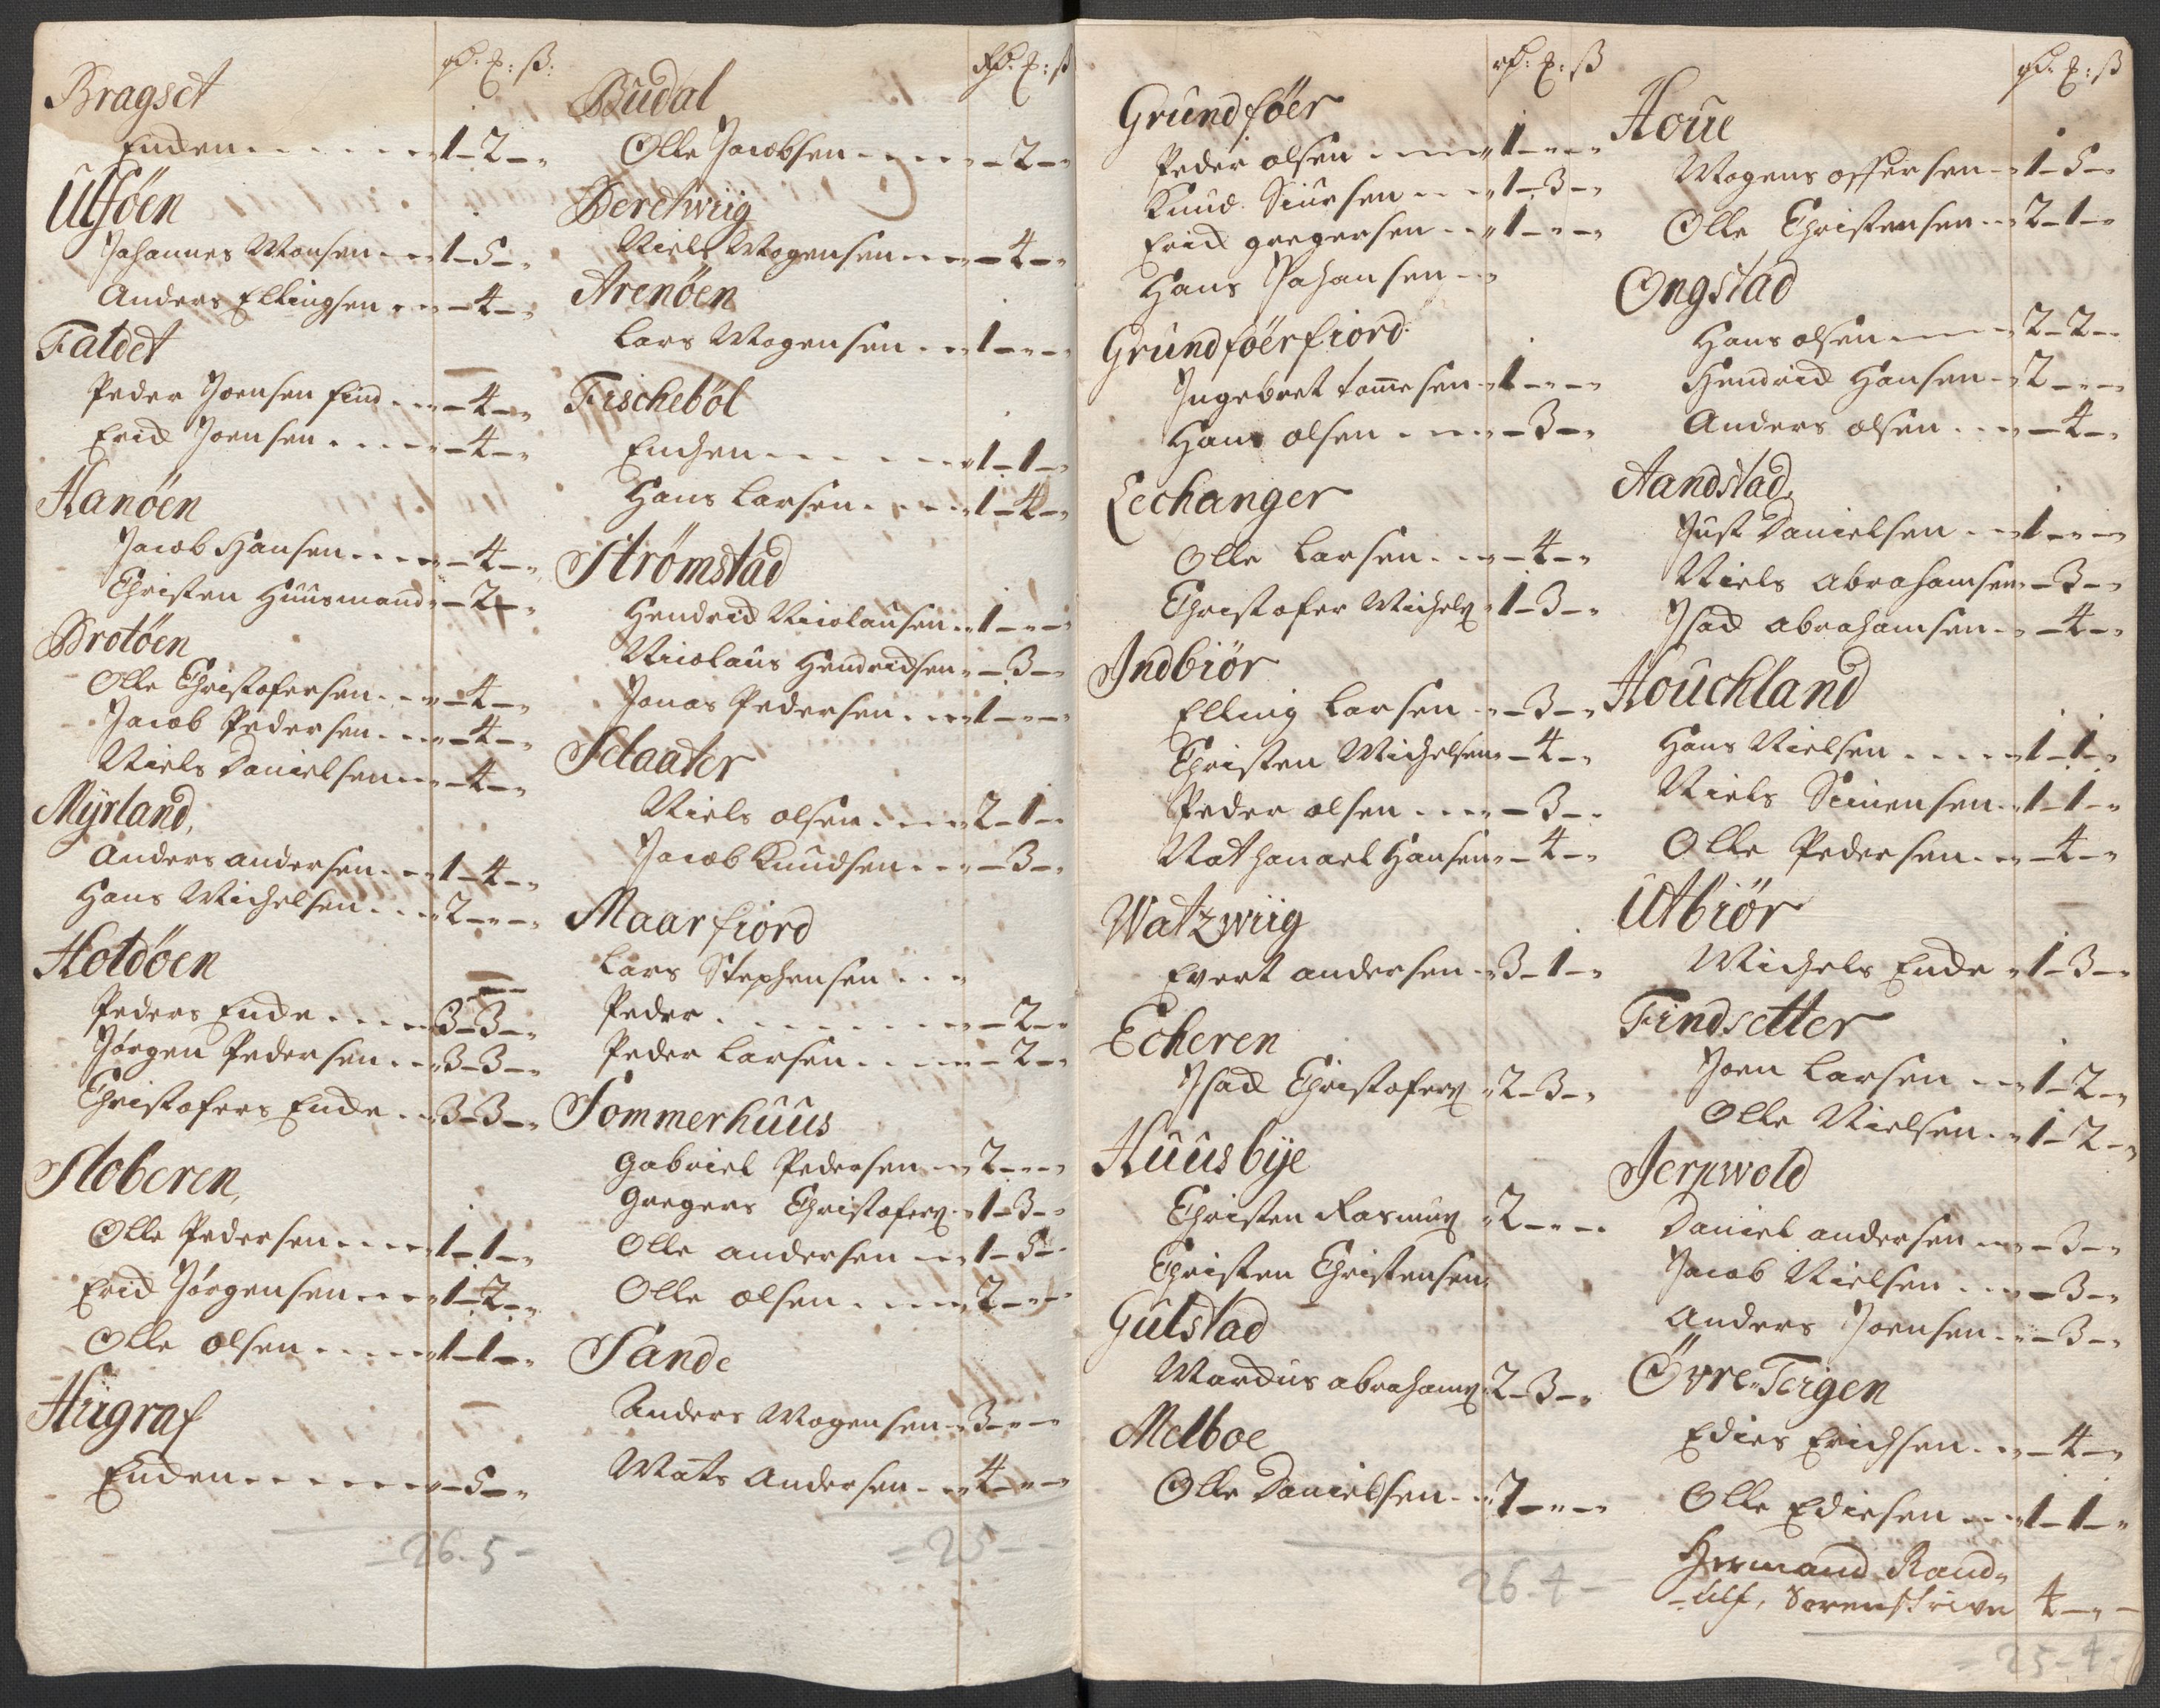 rd. ℔: ß:
Bragset
Enchen - - - - - - 1 - 2 - "
Ulføen
Johannes Monsen - - 1 - 5 - "
Anders Ellingsen - - - 4 - "
Faldet
Peder Joensen find - - - 4 - "
Erich Joensen - - - - 4 - "
Hanøen
Jacob Hansen - - - - 4 - "
Christen Huusmand - 2 - "
Brotøen
Olle Christofersen - - - 4 - "
Jacob Pedersen - - - 4 - "
Niels Danielsen - - - 4 - "
Myrland,
Anders andersen - - 1 - 4 - "
Hans Michelsen - - - 2 - " - "
Holdøen
Peders Enche - - - - 3 - 3 - "
Jørgen Pedersen - - 3 - 3 - "
Christofers Enche - - 3 - 3 - "
Stoberen,
Olle Pedersen - - - - 1 - 1 - "
Erich Jørgensen - - - 1 - 2 - "
Olle olsen - - - - - 1 - 1 - "
Hügraf
Enchen - - - - - - - 5 - "
= 26. 5 -
Rd. ℔: ß
Budal
Olle Jacobsen - - - - - 2 - "
Beretwiig
Niels Mogensen - - - - 4 - "
Arenøen
Lars Mogensen - - 1 - " - "
Fischebøl
Enchen - - - - - - 1 - 1 - "
Hans Larsen - - - - 1 - 4 - "
Strømstad
Hendrich Nicolausen - 1 - " - "
Nicolaus Hendrichsen - - 3 - "
Jonas Pedersen - - - 1 - " - "
Slaater
Niels olsen - - - - 2 - 1 - "
Jacob Knudsen - - - - 3 - "
Maarfiord
Lars Stephensen - - -
Peder - - - - - - - - - 2 - "
Peder Larsen - - - - - 2 - "
Sommerhuus
Gabriel Pedersen - - 2 - " - "
Gregers Christofers. - 1 - 3 - "
Olle andersen - - 1 - 5 - "
Olle olsen - - - - 2 - " - "
Sande
Anders Mogensen - - 3 - " - "
Mats Andersen - - - 4 - " - "
= 25 - -
rd: ℔: ß
Grundføer
Peder olsen - - - - 1 - " - "
Knud Siursen - - - 1 - 3 - "
Erich gregersen - - - 1 - " - "
Hans Johansen - - "
Grundføerfiord:
Ingebret tommesen - 1 - " - "
Hans olsen - - - - - 3 - "
Lechanger
Olle Larsen - - - - 4 - "
Christofer Michels. - 1 - 3 - "
Indbiør
Elling Larsen - - - 3 - "
Christen Michelsen - - 4 - "
Peder olsen - - - - - 3 - "
Nathanael Hansen - - 4 - "
Watzwiig
Evert andersen - - 3 - 1 - "
Echeren
Isach Christofers. - 2 - 3 - "
Huusbÿe
Christen Rasmus. - 2 - " - "
Christen Christensen
Gulstad
Marchus abrahams. - 2 - 3 - "
Melboe
Olle Danielsen - - 7 - " - "
26. 4 -
rd: ℔: ß
Houe
Mogens ossersen - 1 - 5 - "
Olle Christensen - - 2 - 1 - "
Ongstad
Hans olsen - - - - 2 - 2 - "
Hendrich Hansen - 2 - " - "
Anders olsen - - - - 4 - "
Aandstad,
Just Danielsen - - 1 - " - "
Niels abrahamsen - - 3 - "
Isach abrahamsen - - - 4 - "
Houchland
Hans Nielsen - - - - - 1 - 1 - "
Niels Simensen - - 1 - 1 - "
Olle Pedersen - - - 4 - "
Utbiør
Michels Enche - 1 - 3 - "
Findsetter
Joen Larsen - - - 1 - 2 - "
Olle Nielsen - - 1 - 2 - "
Jernwold
Daniel andersen - - - 3 - "
Jacob Nielsen - - - - 3 - "
Anders Joensen - - - 3 - "
Øvre-Teigen
Edies Erichsen - - - 4 - "
Olle Ediesen - - - 1 - 1 - "
Hermand Rand-
-ulf, Sorenskrive 4 - " -
= 25 - 4 -